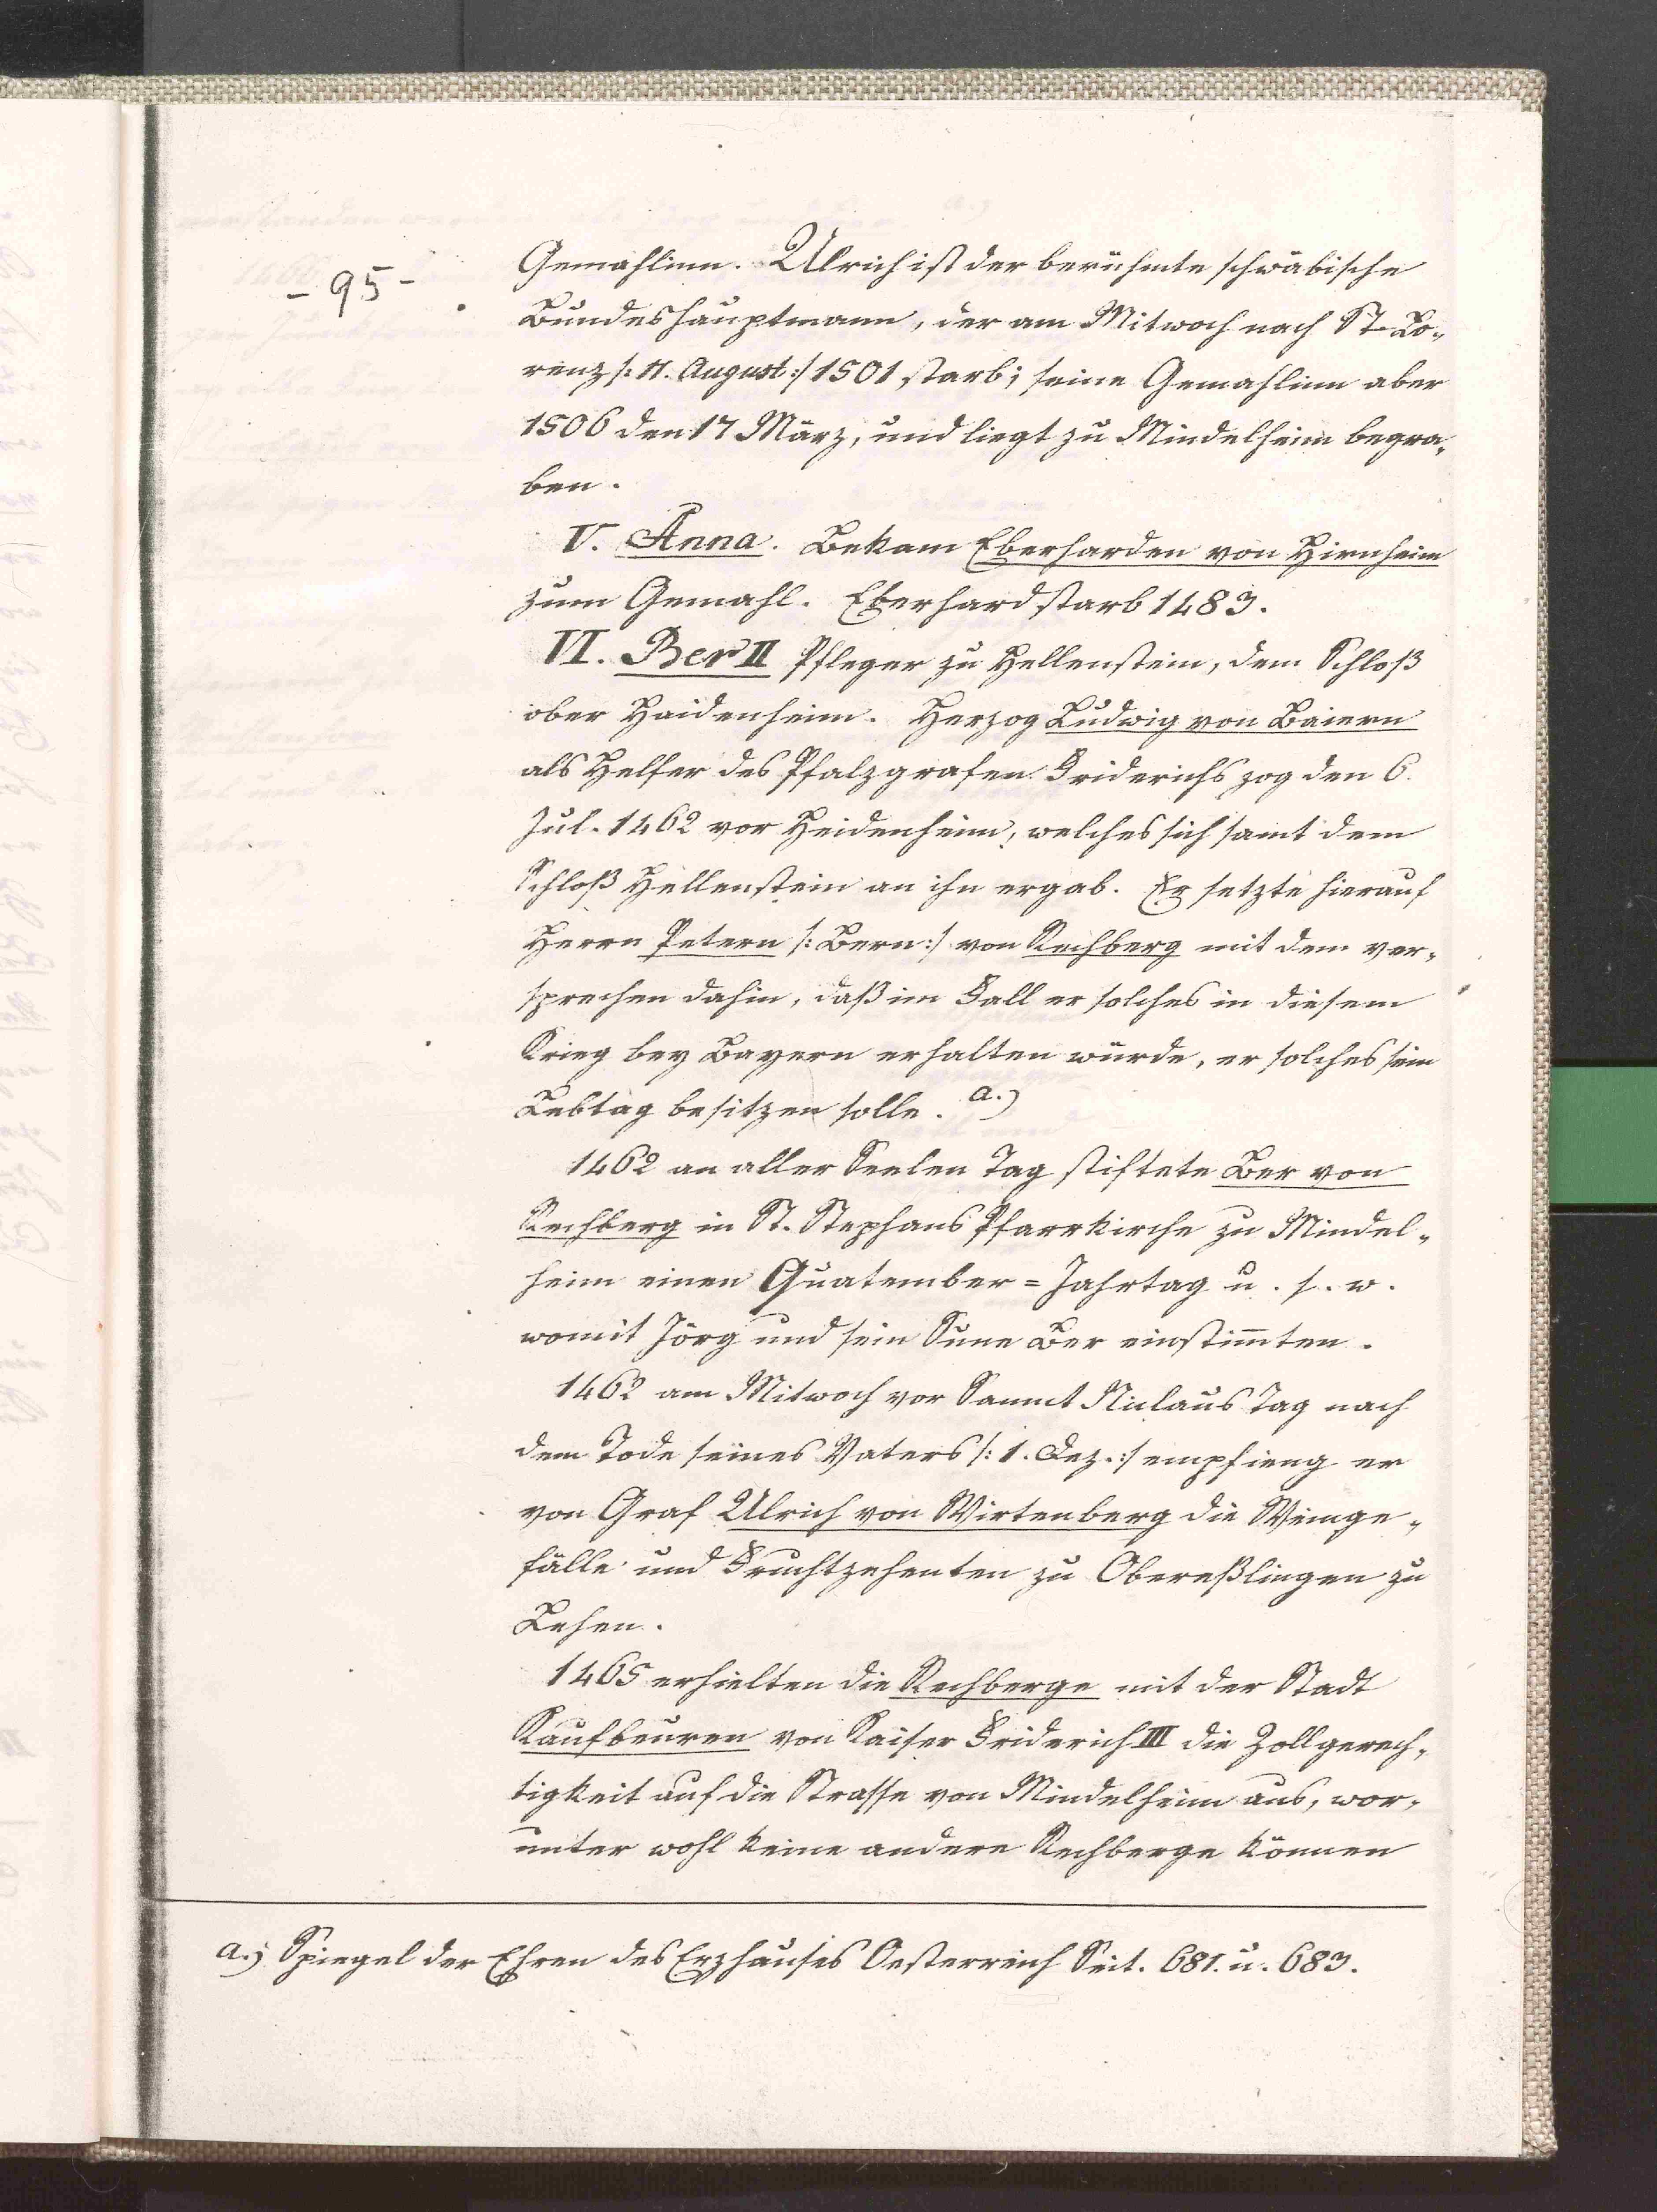 - 95 -
Gemahlinn. Ulrich ist der berühmte schwäbische
Bundeshauptmann, der am Mitwoch nach St. Lo„
renz /: 11. August :/ 1501 starb; seine Gemahlinn aber
1506 den 17 März, und liegt zu Mindelheim begra„
ben.
V. Anna. Bekam Eberharden von Hirnheim
zum Gemahl. Eberhard starb 1483.
VI. Ber II Pfleger zu Hellenstein, dem Schloß
ober Haidenheim. Herzog Ludwig von Baiern
als Helfer des Pfalzgrafen Friderichs zog den 6.
Jul. 1462 vor Heidenheim, welches sich samt dem
Schloß Hellenstein an ihn ergab. Er setzte hierauf
Herrn Petern /: Bern :/ von Rechberg mit dem ver„
sprechen dahin, daß im Fall er solches in diesem
Krieg bey Bayern erhalten würde, er solches sein
Lebtag besitzen solle. a.)
1462 an aller Seelen Tag stiftete Ber von
Rechberg in St. Stephans Pfarrkirche zu Mindel„
heim einen Quatember = Jahrtag u. s. w.
womit Jörg und sein Sune Ber einstimten.
1462 am Mitwoch vor Sannt Niclaus Tag nach
dem Tode seines Vaters /: 1. Dez. :/ empfieng er
von Graf Ulrich von Wirtenberg die Weinge„
fälle und Fruchtzehenten zu Obereßlingen zu
Lehen.
1465 erhielten die Rechberge mit der Stadt
Kaufbeuren von Kaiser Friderich III die Zollgerech„
tigkeit auf die Strasse von Mindelheim aus, wor„
unter wohl keine andere Rechberge können
a.) Spiegel der Ehren des Erzhauses Oesterreich Seit. 681. u. 683.